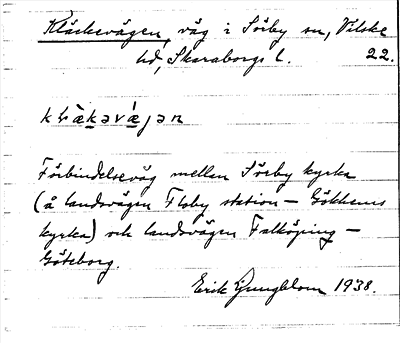 Kläckevägen, väg i Sörby sn, Vilske
hd, Skaraborgs l. 22.
Förbindelseväg mellan Sörby kyrka
(å landsvägen Floby station – Gökhems
kyrka) och landsvägen Falköping –
Göteborg.
Erik Ljungblom 1938.